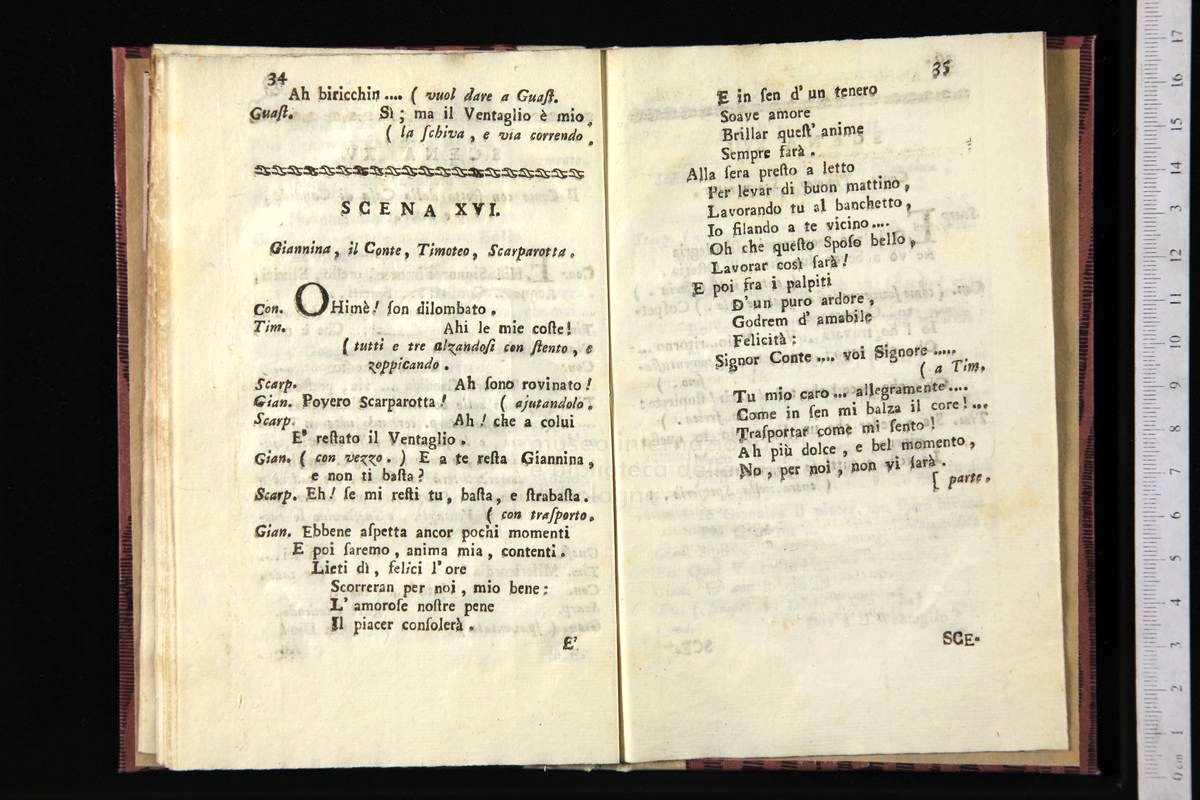 34
Ah biricchin .... ( vuol dare a Guaſt.
Guaſt. Sì ; ma il Ventaglio è mio
( la ſchiva , e via correndo .
SCENA XVI.
Giannina , il Conte , Timoteo , Scarparotta .
Con. OHimè ! ſon dilombato .
Tim. Ahi le mie coſte !
( tutti e tre alzandoſi con ſtento , e
zoppicando .
Scarp. Ah ſono rovinato !
Gian. Povero Scarparotta ! ( ajutandolo .
Scarp. Ah ! che a colui
E' reſtato il Ventaglio .
Gian. ( con vezzo . ) E a te reſta Giannina ,
e non ti baſta ?
Scarp. Eh ! ſe mi reſti tu , baſta , e ſtrabaſta .
( con traſporto .
Gian. Ebbene aſpetta ancor pochi momenti
E poi ſaremo , anima mia , contenti .
Lieti dì , felici l' ore
Scorreran per noi , mio bene :
L' amoroſe noſtre pene
Il piacer conſolerà .
E'
35
E in ſen d' un tenero
Soave amore
Brillar queſt' anime
Sempre ſarà .
Alla ſera preſto a letto
Per levar di buon mattino ,
Lavorando tu al banchetto ,
Io filando a te vicino ....
Oh che queſto Spoſo bello ,
Lavorar così ſarà !
E poi fra i palpiti
D' un puro ardore ,
Godrem d' amabile
Felicità :
Signor Conte .... voi Signore .....
( a Tim.
Tu mio caro ... allegramente ....
Come in ſen mi balza il core ! ...
Traſportar come mi ſento !
Ah più dolce , e bel momento ,
No , per noi , non vi ſarà .
[ parte .
SCE-
0 cm 1 2 3 4 5 6 7 8 9 10 11 12 13 14 15 16 17